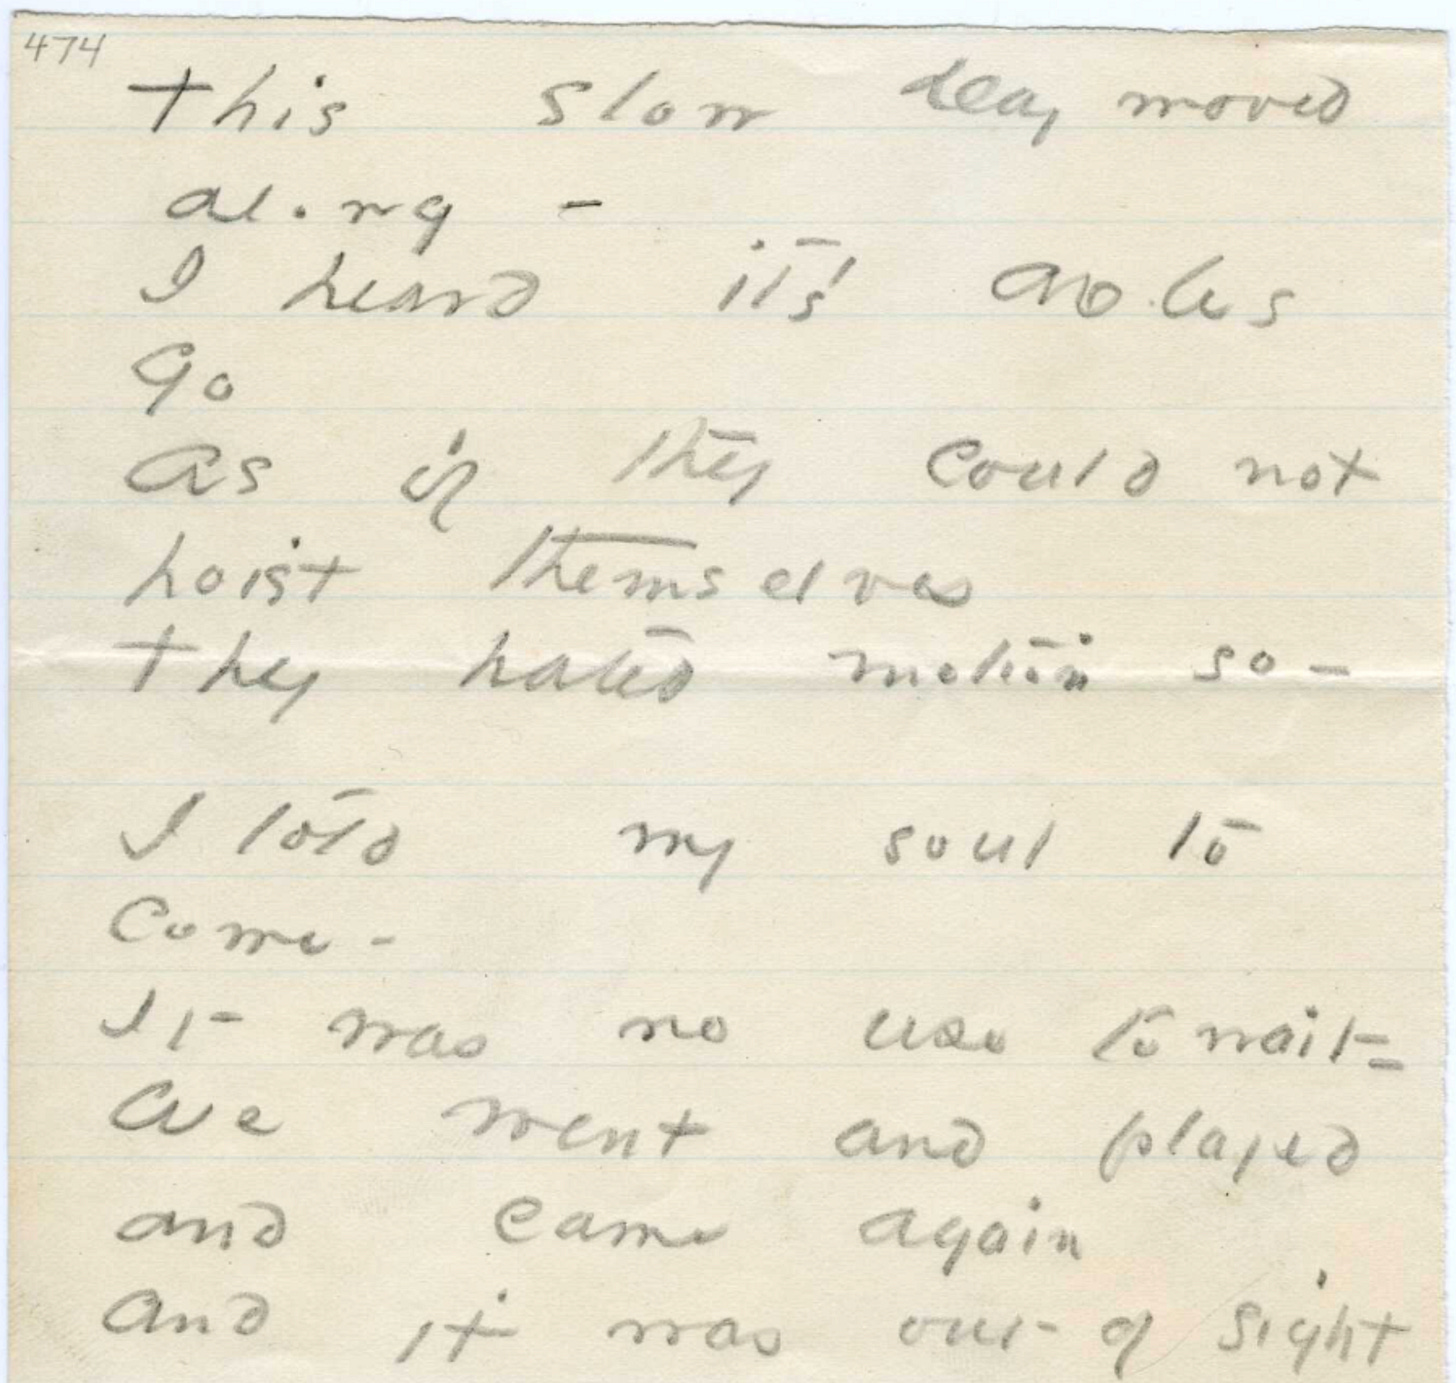 474
This slow day moved
along -
I heard it's axles
go
As if they could not
hoist themselves
They hated motion so -
I told my soul to
come -
It was no use to wait -
We went and played
and came again
And it was out of sight